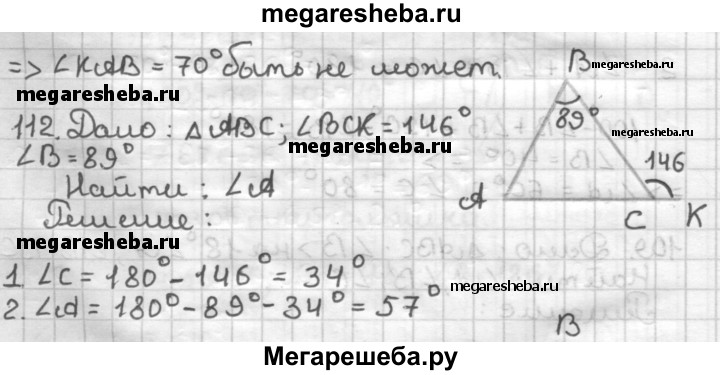 megaresheba.ru
=> ∠KAB = 70° быть не может.
megaresheba.ru
112. Дано: △ABC; ∠BCK = 146°
megaresheba.ru
∠B = 89°
Найти: ∠A
Решение:
megaresheba.ru
1. ∠C = 180° - 146° = 34°
2. ∠A = 180° - 89° - 34° = 57°
B
megaresheba.ru
89°
146
A
C
K
megaresheba.ru
B
Мегарешеба.ру